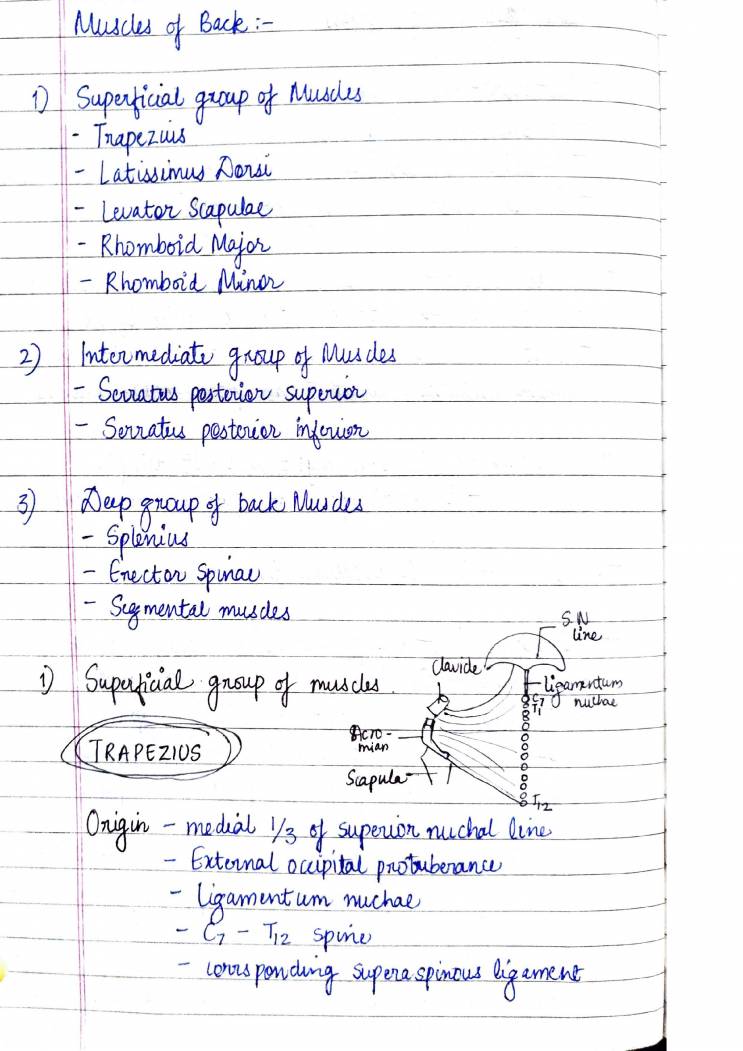 Muscles of Back :-
1) Superficial group of Muscles
- Trapezius
- Latissimus Dorsi
- Levator Scapulae
- Rhomboid Major
- Rhomboid Minor
2) Intermediate group of Muscles
- Serratus posterior superior
- Serratus posterior inferior
3) Deep group of back Muscles
- Splenius
- Erector Spinae
- Segmental muscles
S.N line
1) Superficial group of muscles
clavicle
ligamentum nuchae
C7
T1
TRAPEZIUS
Acro-
mian
Scapula
T12
Origin - medial 1/3 of superior nuchal line
- External occipital protuberance
- Ligamentum nuchae
- C7 - T12 spine
- corrsponding superaspinous ligament